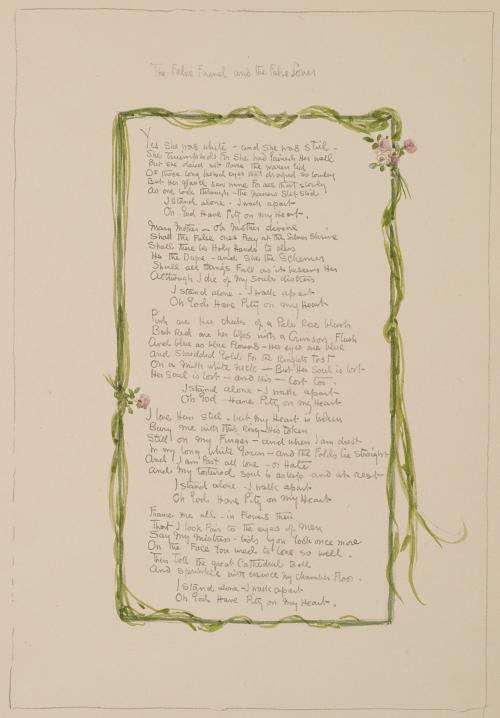 The False Friend and the False Lover
Yes She was white - and She was Still -
She triumphed for She had learned Her well
But She dared not raise the waxen lid
Of those long eyes that drooped so
But Her glance saw mine for all that
As one looks through - the narrow Slit
I stand alone - I walk apart
Oh God Have Pity on my Heart.
Mary Mother - oh Mother divine
Shall the False ones Pray at the Silver Shrine
Shall there be Holy Hands to bless
He the Dupe - and She the Schemer
Shall all things Fall as it beseems Her
Although I die of my Souls distress
I stand alone - I walk apart
Oh God Have Pity on my Heart
Pink are Her cheeks of a Pale Rose blush
But Red are her lips with a Crimson Flush
And blue as blue Flowers - Her eyes are blue
And Shredded Gold For the Ringlets
On a milk white neck - But Her Soul is lost
Her Soul is lost - and His - lost too.
I stand alone - I walk apart
Oh God - Have Pity on my Heart
I love Him still - but my Heart is broken
Bury me with this Ring - His token
Still on my Finger - and when I am dressed
In my long White Gown - and the Folds lie Straight
And I am Past all love - or Hate
And my tortured soul is asleep and at rest
I stand alone - I walk apart
Oh God Have Pity on my Heart
Frame me all - in Flowers then
That I look Fair to the eyes of men
Say my mistress - bids you look once more
On the Face you used to love so well.
Then Toll the great Cathedral Bell
And sprinkle with my chamber Floor.
I stand alone - I walk apart
Oh God Have Pity on my Heart.